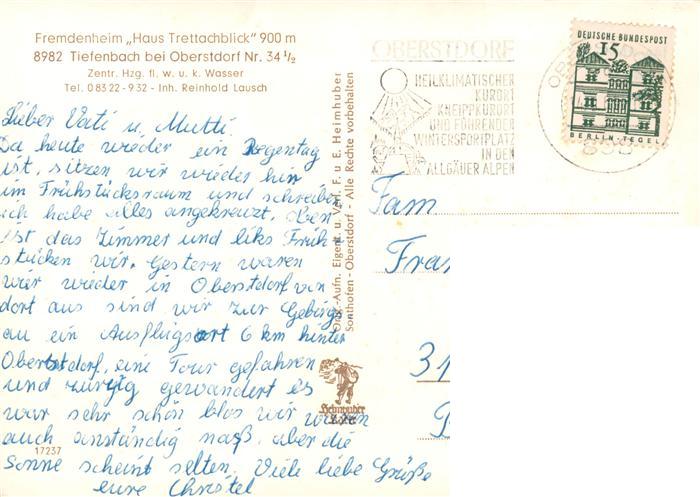 Fremdenheim „Haus Trettachblick" 900 m
8982 Tiefenbach bei Oberstdorf Nr. 34 1/2
Zentr. Hzg. fl. w. u. k. Wasser
Tel. 08322-932 - Inh. Reinhold Lausch
Lieber Vati u. Mutti.
Da heute wieder ein Regentag
ist, sitzen wir wieder hier
im Frühstücksraum und schreiben
ich habe alles angekreuzt. Oben
ist das Zimmer und liks Früh-
stücken wir. Gestern waren
wir wieder in Oberstdorf von
dort aus sind wir zur Gebirgs
au ein Ausflugsort 6 km hinter
Oberstdorf, eine Tour gefahren
und gewandert es
war sehr schön blos wir waren
auch anständig naß, aber die
Sonne scheint selten. Viele liebe Grüße
eure Christel
17237
Orig.-Aufn. Eigent. u. Verl. F. u. E. Heimhuber
Sonthofen - Oberstdorf - Alle Rechte vorbehalten
Heimhuber
OBERSTDORF
HEILKLIMATISCHER
KURORT
KNEIPPKURORT
UND FÜHRENDER
WINTERSPORTPLATZ
IN DEN
ALLGÄUER ALPEN
DEUTSCHE BUNDESPOST
15
BERLIN-TEGEL
Fam
Fra
31